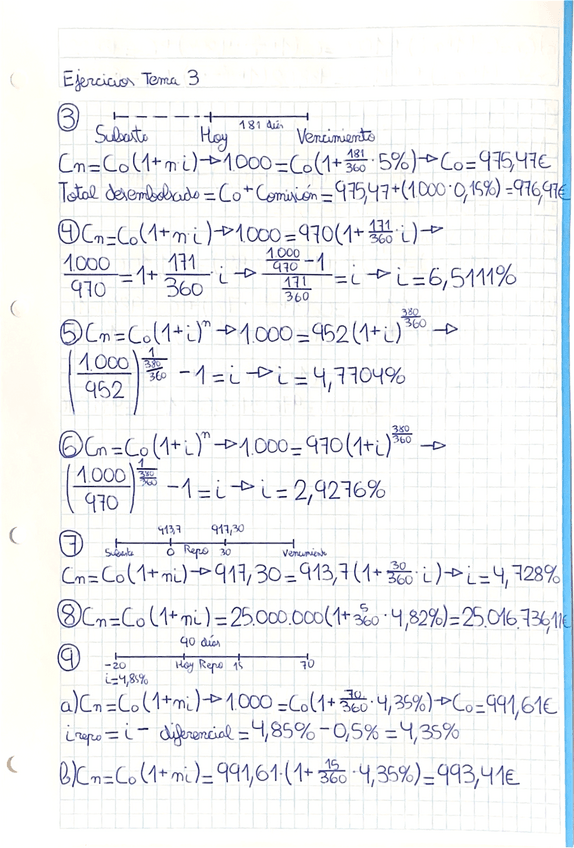 Ejercicios Tema 3
③ 181 días
Subasta Hoy Vencimiento
Cn=Co(1+n·i)→1.000=Co(1+181/360·5%)→Co=975,47€
Total desembolsado=Co+Comisión=975,47+(1.000·0,15%)=976,97€
④Cn=Co(1+n·i)→1.000=970(1+171/360·i)→
1.000/970=1+171/360·i→(1.000/970-1)/(171/360)=i→i=6,5111%
⑤Cn=Co(1+i)^n→1.000=952(1+i)^(380/360)→
(1.000/952)^(1/(380/360))-1=i→i=4,7704%
⑥Cn=Co(1+i)^n→1.000=970(1+i)^(380/360)→
(1.000/970)^(1/(380/360))-1=i→i=2,9276%
⑦ 913,7 917,30
Subasta 0 Repo 30 Vencimiento
Cn=Co(1+ni)→917,30=913,7(1+30/360·i)→i=4,728%
⑧Cn=Co(1+ni)=25.000.000(1+5/360·4,82%)=25.016.736,11€
⑨ 90 días
-20 Hoy Repo 15 70
i=4,85%
a)Cn=Co(1+ni)→1.000=Co(1+70/360·4,35%)→Co=991,61€
i repo=i- diferencial=4,85%-0,5%=4,35%
b)Cn=Co(1+ni)=991,61·(1+15/360·4,35%)=993,41€